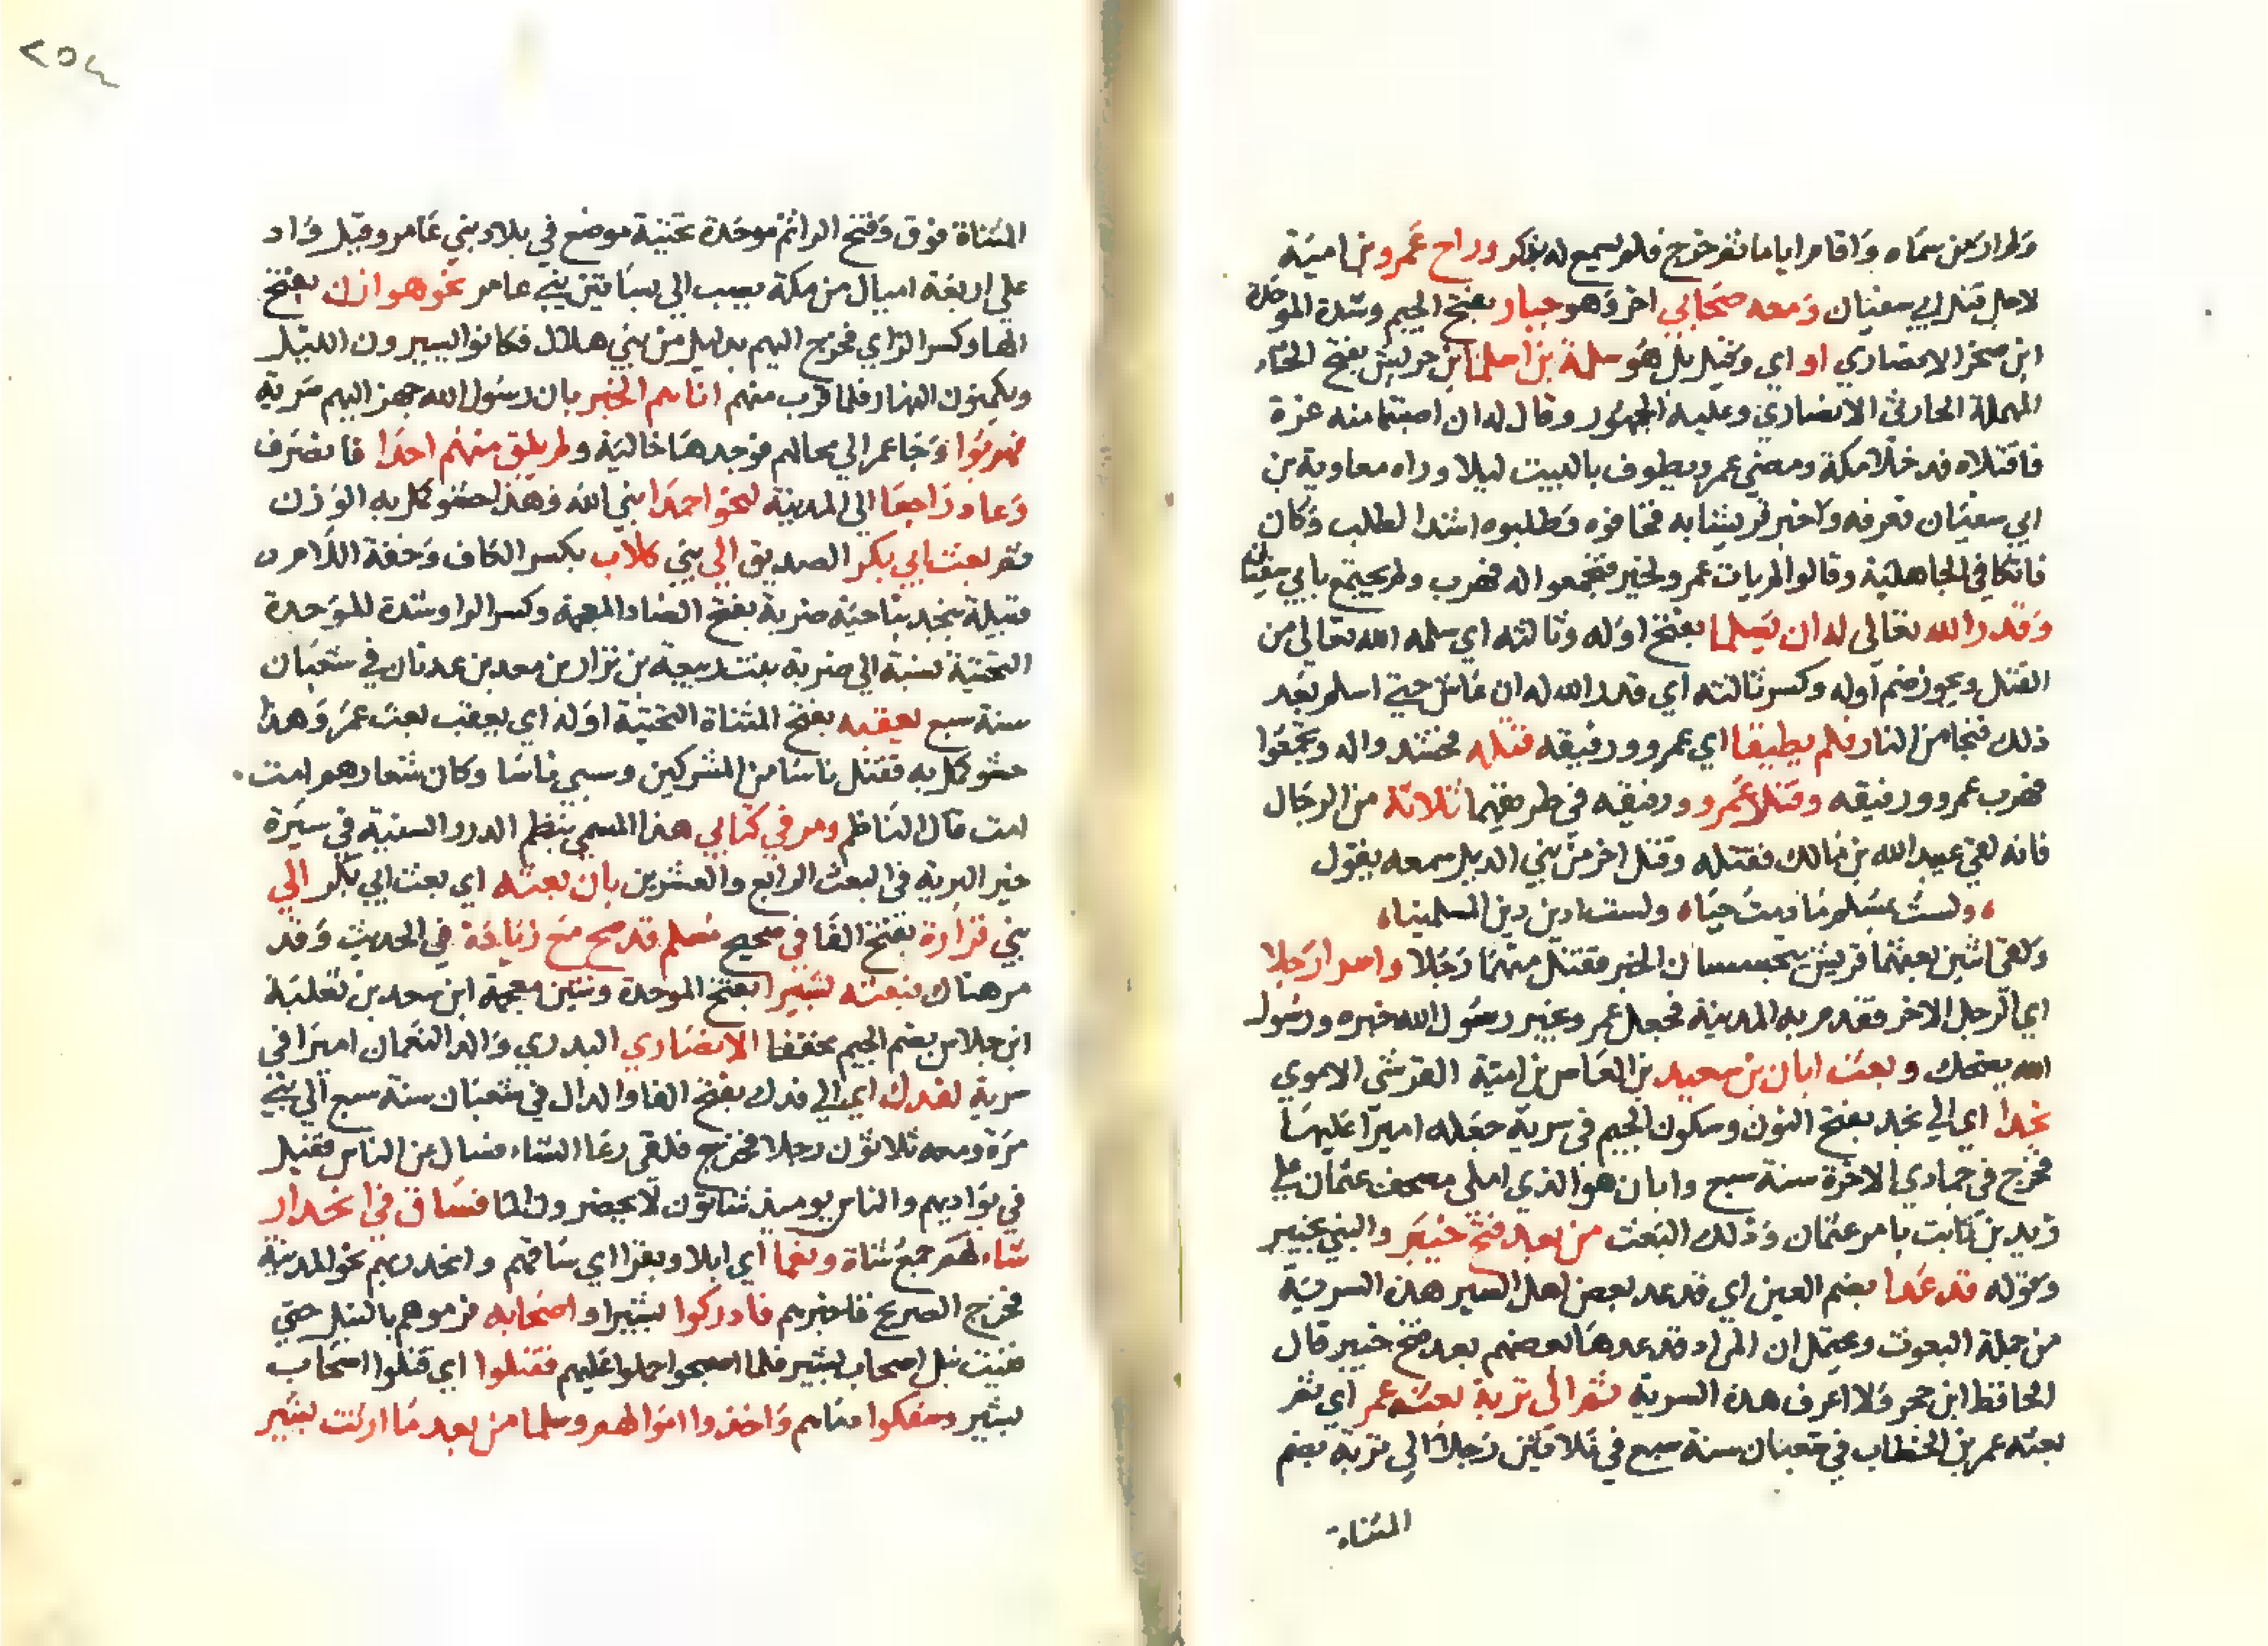 ولم ار من سماه واقام اياما ثم خرج فلم يسمع له بذكر وراح عمرو بن امية
لاجل قتل ابي سفيان ومعه صحابي اخر وهو جبار بفتح الجيم وشدة الموحدة
ابن صخر الانصاري او اي وقيل بل هو سلمة بن اسلم بن حريش بفتح الحاء
المهملة الحارثي الانصاري وعليه الجمهور وقال له ان اصبتما منه غرة
فاقتلاه فدخلا مكة ومضى عمرو يطوف بالبيت ليلا وراه معاوية بن
ابي سفيان فعرفه واخبر قريشا به فخافوه وطلبوه اشد الطلب وكان
فاتكا في الجاهلية وقالوا لم يات عمرو لخير فتجمعوا له فهرب ولم يجتمع بابي سفيان
وقدر الله تعالى له ان يسلما بفتح اوله وثالثه اي سلمه الله تعالى من
القتل ويجوز ضم اوله وكسر ثالثه اي قدر الله له ان عاش حتى اسلم بعد
ذلك فنجا من النار فلم يطيقا اي عمرو ورفيقه قتله فحشد واله وتجمعوا
فهرب عمرو ورفيقه وقتل عمرو ورفيقه في طريقهما ثلاثة من الرجال
فانه لقي عبيد الله بن مالك فقتله وقتل اخر من بني الديل سمعه يقول
ولست بمسلم ما دمت حيا ولست ادين دين المسلمينا
ولقي اثنين بعثهما قريش يتجسسان الخبر فقتل منهما رجلا واسرا رجلا
اي الرجل الاخر فقدم به المدينة فجعل عمرو يخبر رسول الله خبره ورسول
الله يضحك وبعث ابان بن سعيد بن العاص بن امية القرشي الاموي
نجدا اي الي نجد بفتح النون وسكون الجيم في سرية جعله اميرا عليها
فخرج في جمادي الاخرة سنة سبع وابان هو الذي املى مصحف عثمان علي
زيد بن ثابت بامر عثمان وذلك البعث من بعد فتح خيبر والنبي بخيبر
وقوله قد عدا بضم العين اي قد عد بعض اهل السير هذه السرية
من جملة البعوث ويحتمل ان المراد قد عدها بعضهم بعد فتح خيبر قال
الحافظ ابن حجر ولا اعرف هذه السرية ثم الى تربة بعثه عمر اي ثم
بعثه عمر بن الخطاب في شعبان سنة سبع في ثلاثين رجلا الي تربة بضم
المثناة
المثناة فوق وفتح الرا ثم موحدة تحتية موضع في بلاد بني عامر وقيل واد
علي اربعة اميال من مكة يصب الي بساتين بني عامر نحو هوازن بفتح
الها وكسر الزاي فخرج اليهم بدليل من بني هلال فكانوا يسيرون الليل
ويكمنون النهار فلما قرب منهم اتاهم الخبر بان رسول الله جهز اليهم سرية
فهربوا وجا عمر الي محالهم فوجدها خالية ولم يلق منهم احدا فانصرف
وعاد راجعا الى المدينة لنحو احمدا نبي الله وهذا حشو كمل به الوزن
ثم بعث ابي بكر الصديق الي بني كلاب بكسر الكاف وخفة اللام
قبيلة بنجد بناحية ضرية بفتح الضاد المعجمة وكسر الرا وشدة الموحدة
التحتية نسبة الي ضرية بنت ربيعة بن نزار بن معد بن عدنان في شعبان
سنة سبع يعقبه بفتح المثناة التحتية اوله اي يعقب بعث عمر وهذا
حشو كمل به فقتل ناسا من المشركين وسبي ناسا وكان شعارهم امت
امت قال الناظم ومر في كتابي هذا المسمي بنظم الدرر السنية في سيرة
خير البرية في البعث الرابع والعشرين بان بعثه اي بعث ابي بكر الي
بني فزارة بفتح الفا في صحيح مسلم قد صح مع زيادة في الحديث وقد
مر هناك فبعثه بشيرا بفتح الموحدة وشين معجمة ابن سعد بن ثعلبة
ابن جلاس بضم الجيم مخففا الانصاري البدري والد النعمان اميرا في
سرية لفدك اي الى فدك بفتح الفا والدال في شعبان سنة سبع الي بني
مرة ومعه ثلاثون رجلا فخرج فلقي رعا الشاء فسال عن الناس فقيل
في بواديهم والناس يوميذ شاتون لا يحضرون الما فساق في انحدار
شاء لهم جمع شاة ونعما اي ابلا وبقرا اي ساقهم وانحدر بهم نحو المدينة
فخرج الصريخ فاخبرهم فادركوا بشيرا واصحابه فرموهم بالنبل حتي
فنيت نبل اصحاب بشير فلما اصبحوا حملوا عليهم فقتلوا اي قتلوا اصحاب
بشير وسفكوا دماهم واخذوا اموالهم وسلما من بعد ما ارتث بشير